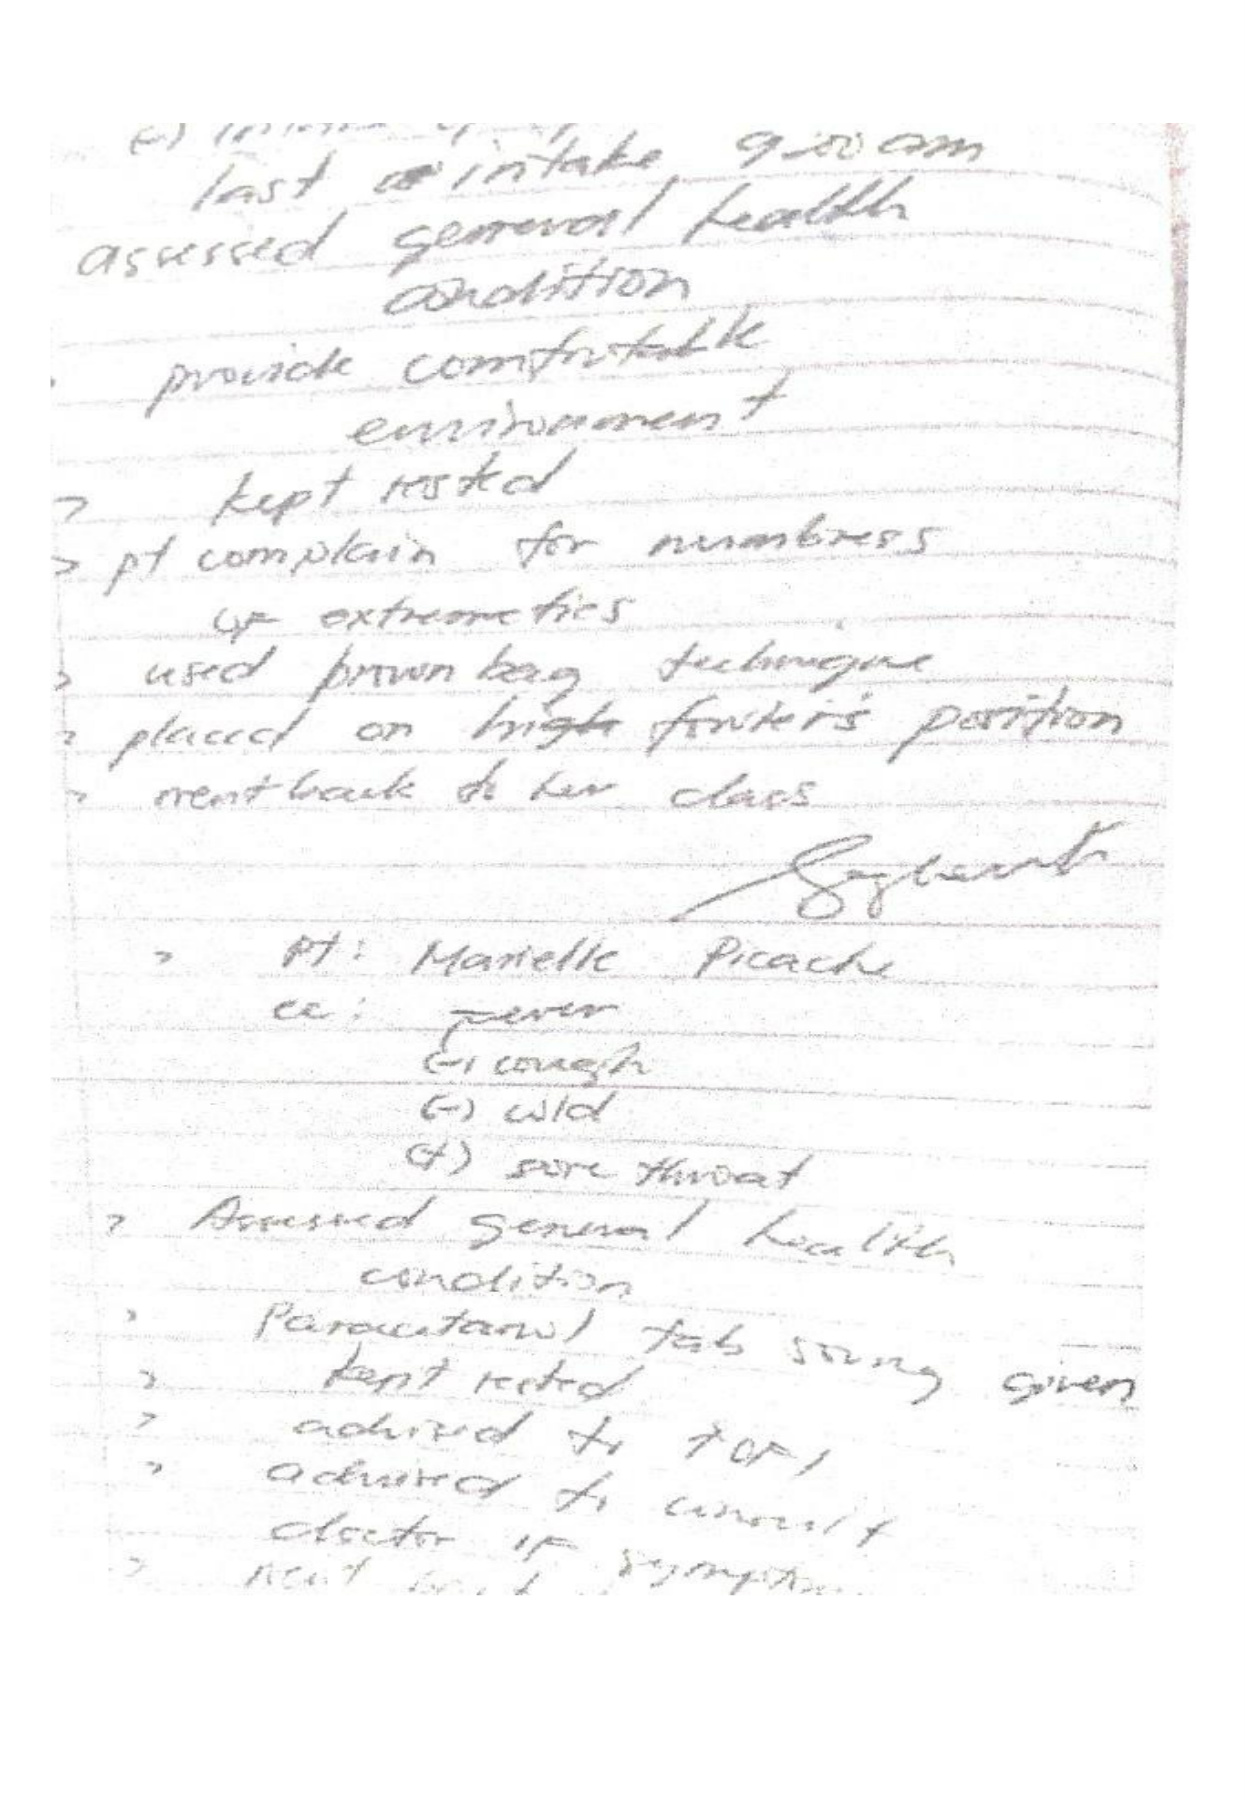 last intake 9:00 am
assessed general health
condition
provide comfortable
environment
> kept rested
> pt complain for numbness
of extremetics
> used brown bag technique
> placed on high fowler's position
> went back to her class
> Pt: Marielle Picache
cc: Fever
(-) cough
(-) cold
(+) sore throat
> Assessed general health
condition
> Paracetamol tab 500mg given
> kept rested
> advised to TOFI
> advised to consult
doctor if
> went